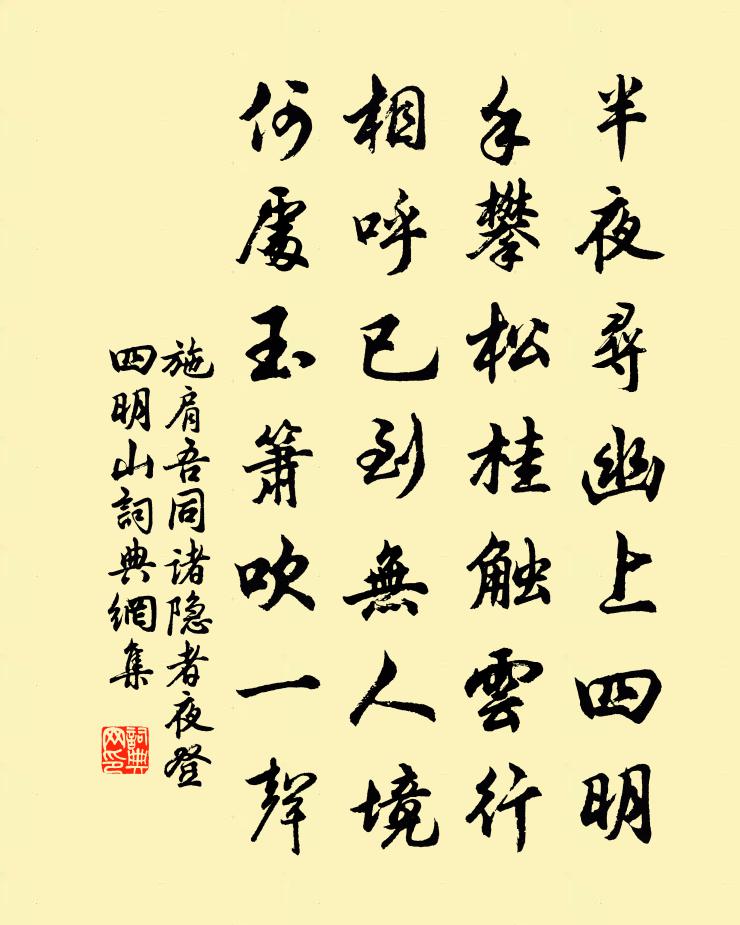 半夜尋幽上四明
手攀松桂触雲行
相呼已到無人境
何處玉簫吹一聲
施肩吾同诸隐者夜登
四明山詞典網集
詞典
网印